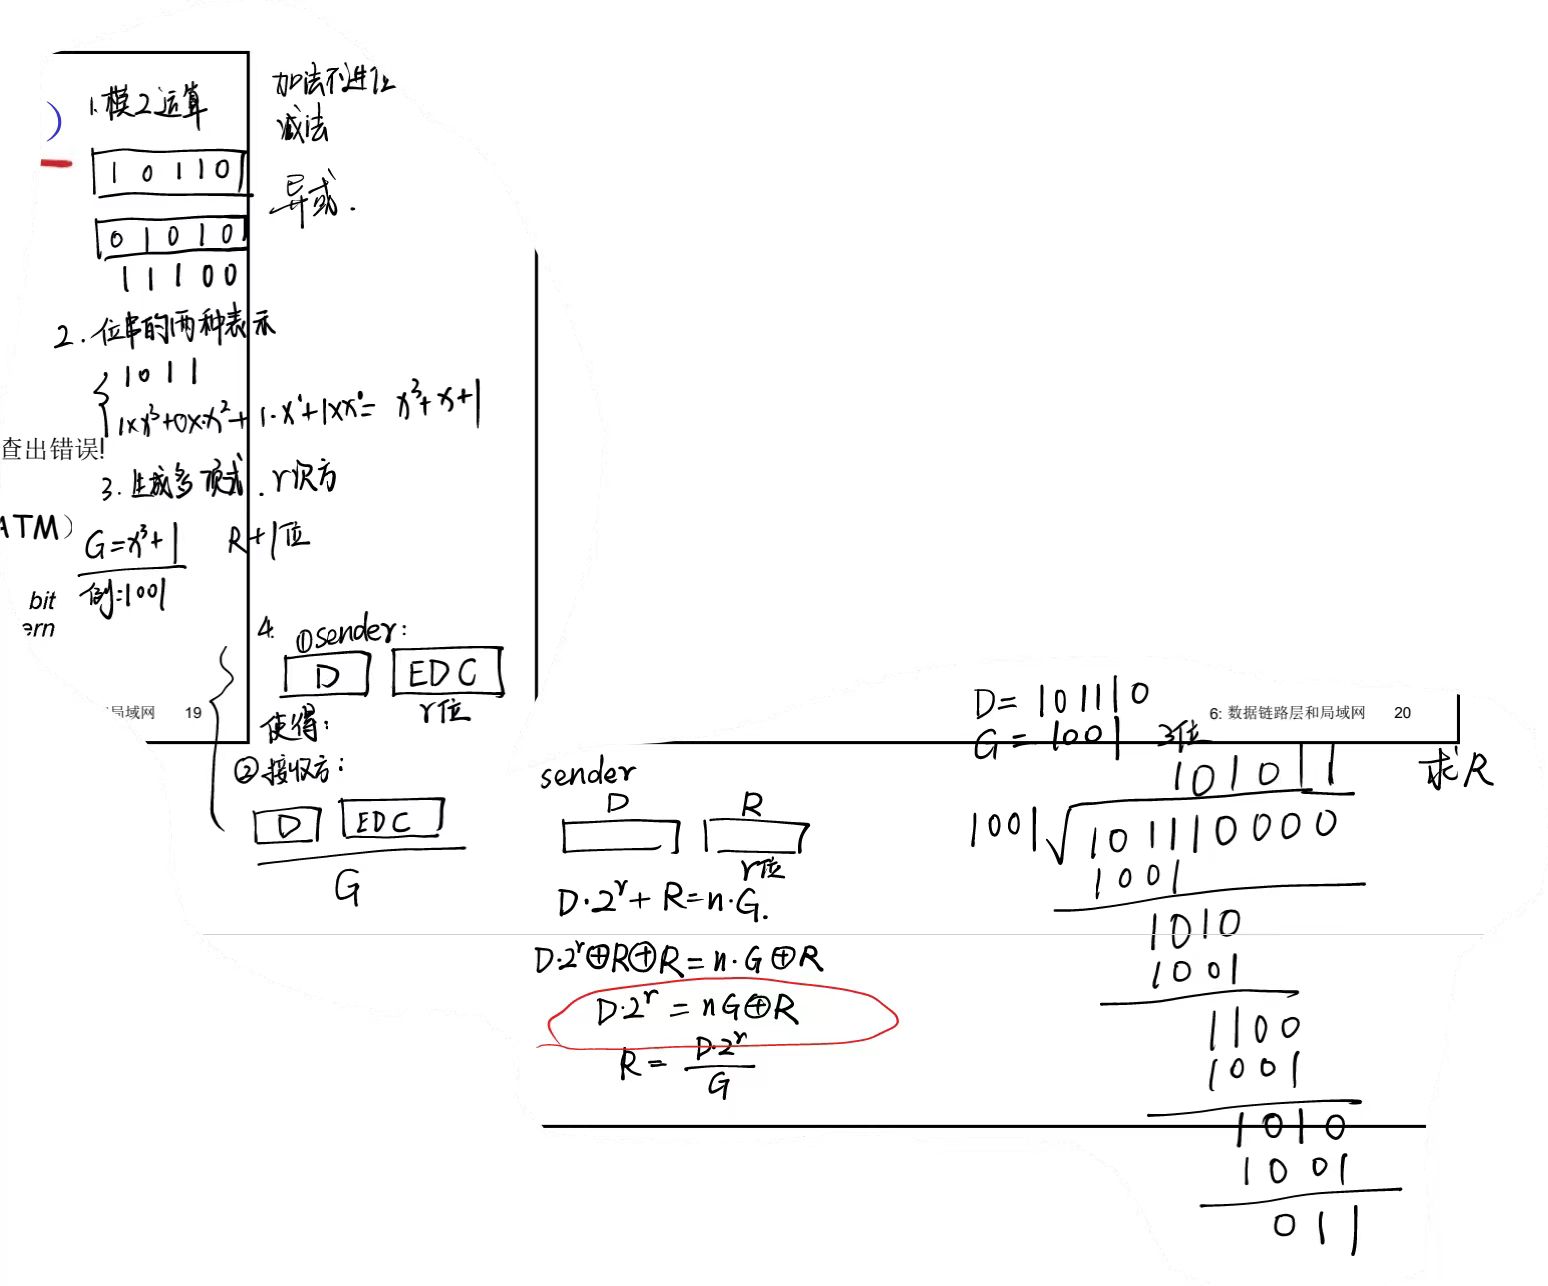 1.模2运算
加法不进位
减法
)
10110
异或.
01010
11100
2.位串的两种表示
1011
1×x³+0×x²+1·x¹+1×x⁰= x³+x+1
查出错误!
3.生成多项式.r次方
ATM)
G=x³+1 R+1位
例:1001
bit
ern
4. ①sender:
D EDC
r位
局域网 19
使得:
②接收方:
D EDC
G
D=101110
G=1001 3位
6: 数据链路层和局域网 20
求R
sender
D R
r位
D·2ʳ+R=n·G.
D·2ʳ⊕R⊕R=n·G⊕R
D·2ʳ=nG⊕R
R=D·2ʳ/G
101011
1001√101110000
1001
1010
1001
1100
1001
1010
1001
011